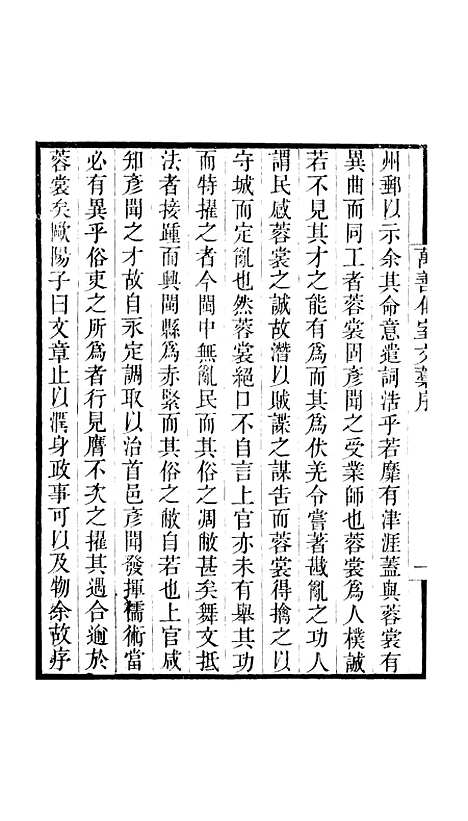 萬善花室文藁序
一
州郵以示余其命意遣詞浩乎若靡有津涯蓋與蓉裳有
異曲而同工者蓉裳固彥聞之受業師也蓉裳爲人樸誠
若不見其才之能有爲而其爲伏羌令嘗著戡亂之功人
謂民感蓉裳之誠故潛以賊諜之謀告而蓉裳得擒之以
守城而定亂也然蓉裳絕口不自言上官亦未有舉其功
而特擢之者今閩中無亂民而其俗之凋敝甚矣舞文抵
法者接踵而興閩縣爲赤緊而其俗之敝自若也上官咸
知彥聞之才故自永定調取以治首邑彥聞發揮儒術當
必有異乎俗吏之所爲者行見膺不次之擢其遇合逈於
蓉裳矣歐陽子曰文章止以潤身政事可以及物余故序